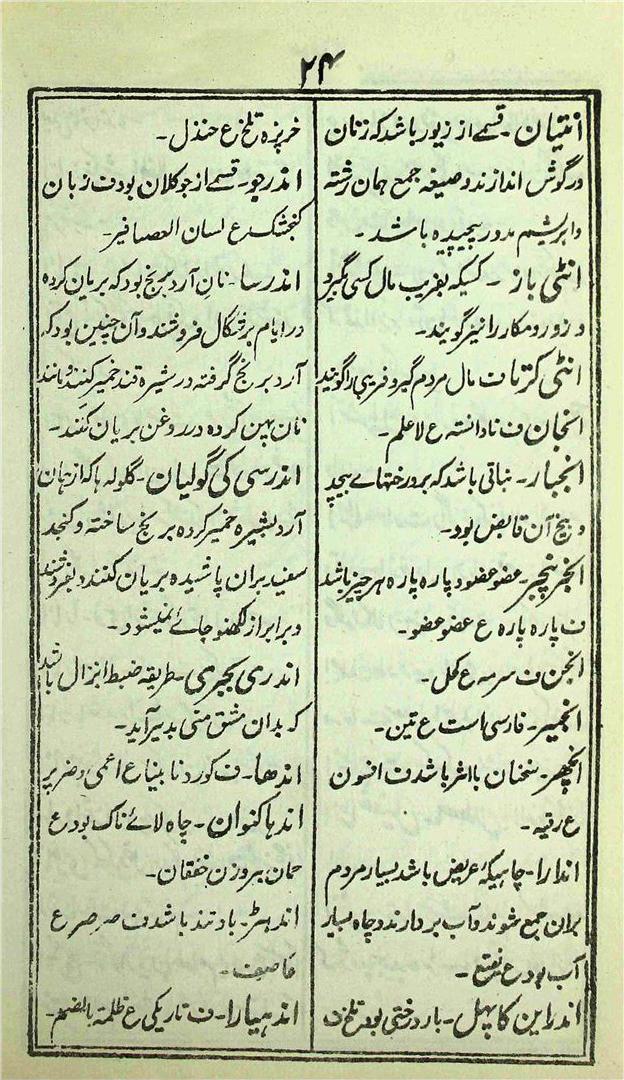 ۲۴
انتیان - قسمے از زیور باشد که زنان
در گوش اندازند و صیغه جمع همان رشته
و ابریشم مدور پیچیده باشد -
انٹی باز - کسیکه بفریب مال کسی گیرد
و زور و مکار را نیز گویند -
انٹی کرتات مال مردم گیر و فریبی را گویند
انجان ف نادانسته ع لاعلم -
انجبار - نباتی باشد که بر درختهاے پیچد
و بیخ آن قابض بود -
انجر پنجر - عضو عضو و پاره پاره هر چیز باشد
ف پاره پاره ع عضو عضو -
انجن ف سرمه ع کحل -
انجیر - فارسی است ع تین -
انچهر - سخنان با اثر باشد ف افسون
ع رقیه -
اندارا - چاهیکه عریض باشد بسیار مردم
بران جمع شوند و آب بردارند و چاه بسیار
آب بود ع نقیع -
اندراین کا پهل - بار درختی بود تلخ ف
خرپزه تلخ ع حنذل -
اندر جو - قسمے از جو کلان بود ف زبان
کنجشک ع لسان العصافیر -
اندرسا - نان آرد برنج بود که بریان کرده
در ایام برشکال فروشند و آن چنین بود که
آرد برنج گرفته در شیره قند خمیر کنند و مانند
نان پهن کرده در روغن بریان کنند -
اندرسی کی گولیان - گلوله ها که از همان
آرد بشیره خمیر کرده برنج ساخته و کنجد
سفید بران پاشیده بریان کنند و بفروشند
و برابر از لکهنو جائے نمیشود -
اندری بجری - طریقه ضبط انزال باشد
که بدان مشق منی بدیر آید -
اندها - ف کور و نابینا ع اعمی و ضریر
اندها کنوان - چاه لائے ناک بود ع
خمان بروزن خفقان -
اندهڑ - باد تند باشد ف صرصر ع
عاصف -
اندهیارا - ف تاریکی ع ظلمة بالضم -